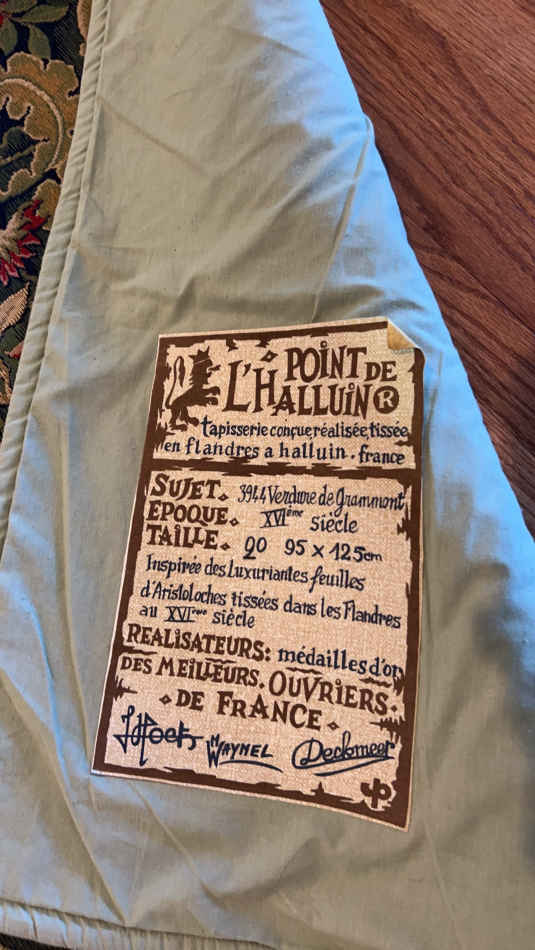 POINT DE
L'HALLUIN ®
tapisserie conçue, réalisée, tissée
en flandres a halluin. france
SUJET. 3944 Verdure de Grammont
ÉPOQUE. XVIème siècle
TAILLE. 20 95 x 125cm
Inspirée des Luxuriantes feuilles
d'Aristoloches tissées dans les Flandres
au XVIème siècle
REALISATEURS: médailles d'or
DES MEILLEURS. OUVRIERS.
DE FRANCE
W WAYMEL